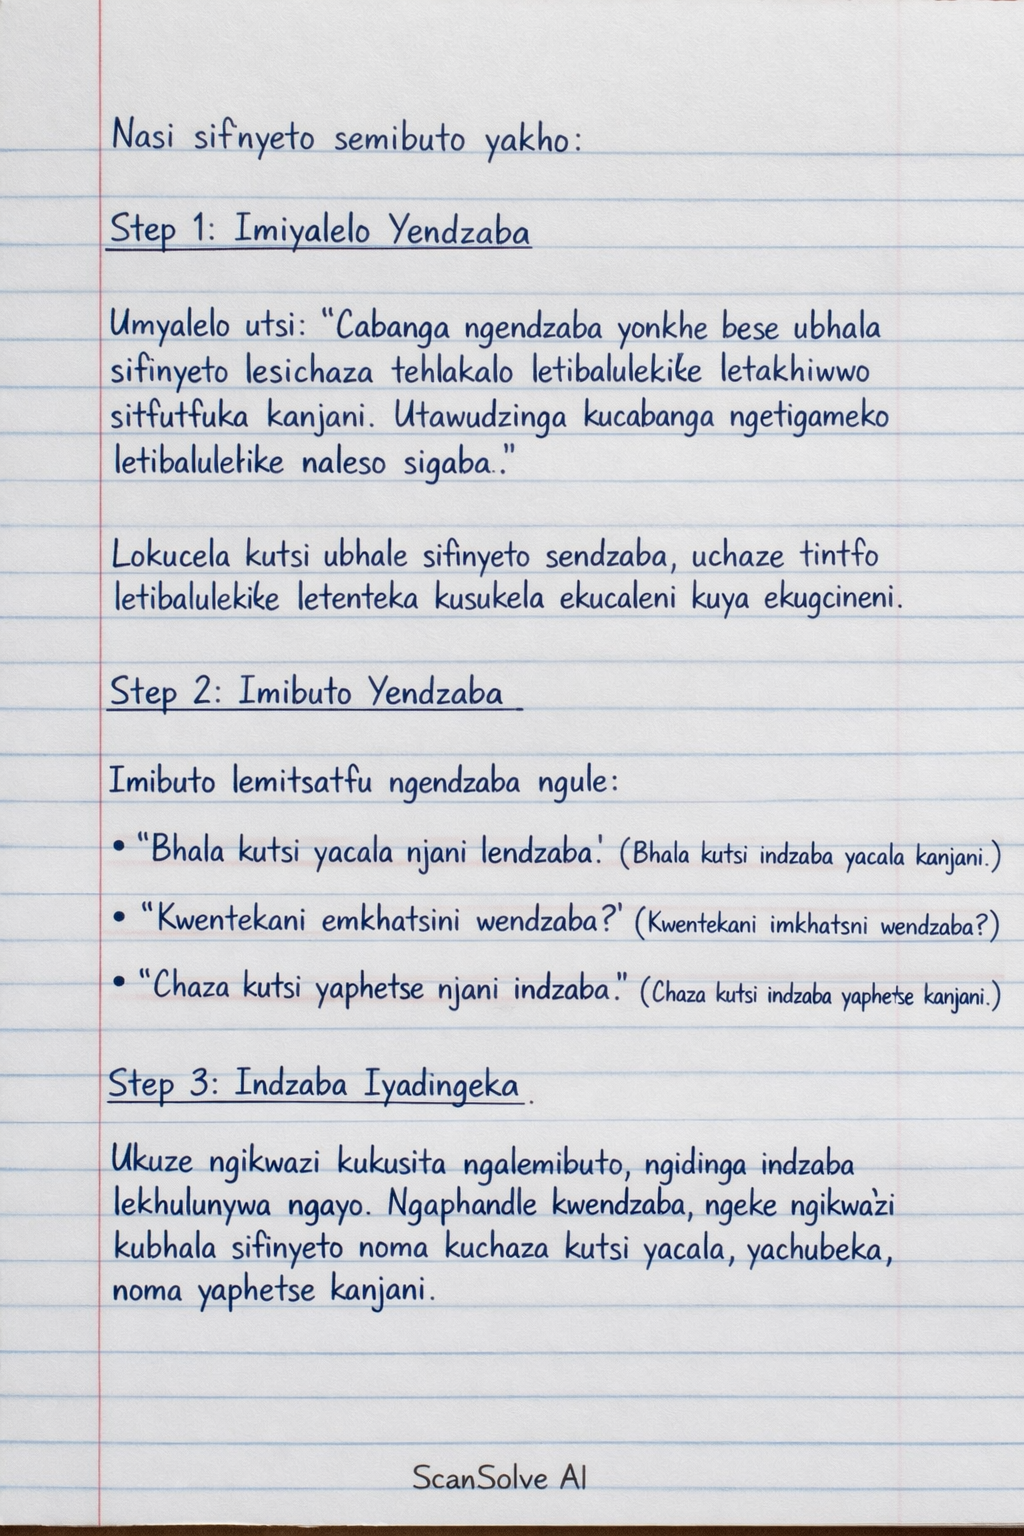 Nasi sifnyeto semibuto yakho:
Step 1: Imiyalelo Yendzaba
Umyalelo utsi: "Cabanga ngendzaba yonkhe bese ubhala
sifinyeto lesichaza tehlakalo letibalulekike letakhiwwo
sitfutfuka kanjani. Utawudzinga kucabanga ngetigameko
letibaluletike naleso sigaba.."
Lokucela kutsi ubhale sifinyeto sendzaba, uchaze tintfo
letibalulekike letenteka kusukela ekucaleni kuya ekugcineni.
Step 2: Imibuto Yendzaba
Imibuto lemitsatfu ngendzaba ngule:
• "Bhala kutsi yacala njani lendzaba.' (Bhala kutsi indzaba yacala kanjani.)
• "Kwentekani emkhatsini wendzaba?' (Kwentekani imkhatsni wendzaba?)
• "Chaza kutsi yaphetse njani indzaba." (Chaza kutsi indzaba yaphetse kanjani.)
Step 3: Indzaba Iyadingeka.
Ukuze ngikwazi kukusita ngalemibuto, ngidinga indzaba
lekhulunywa ngayo. Ngaphandle kwendzaba, ngeke ngikwazi
kubhala sifinyeto noma kuchaza kutsi yacala, yachubeka,
noma yaphetse kanjani.
ScanSolve AI